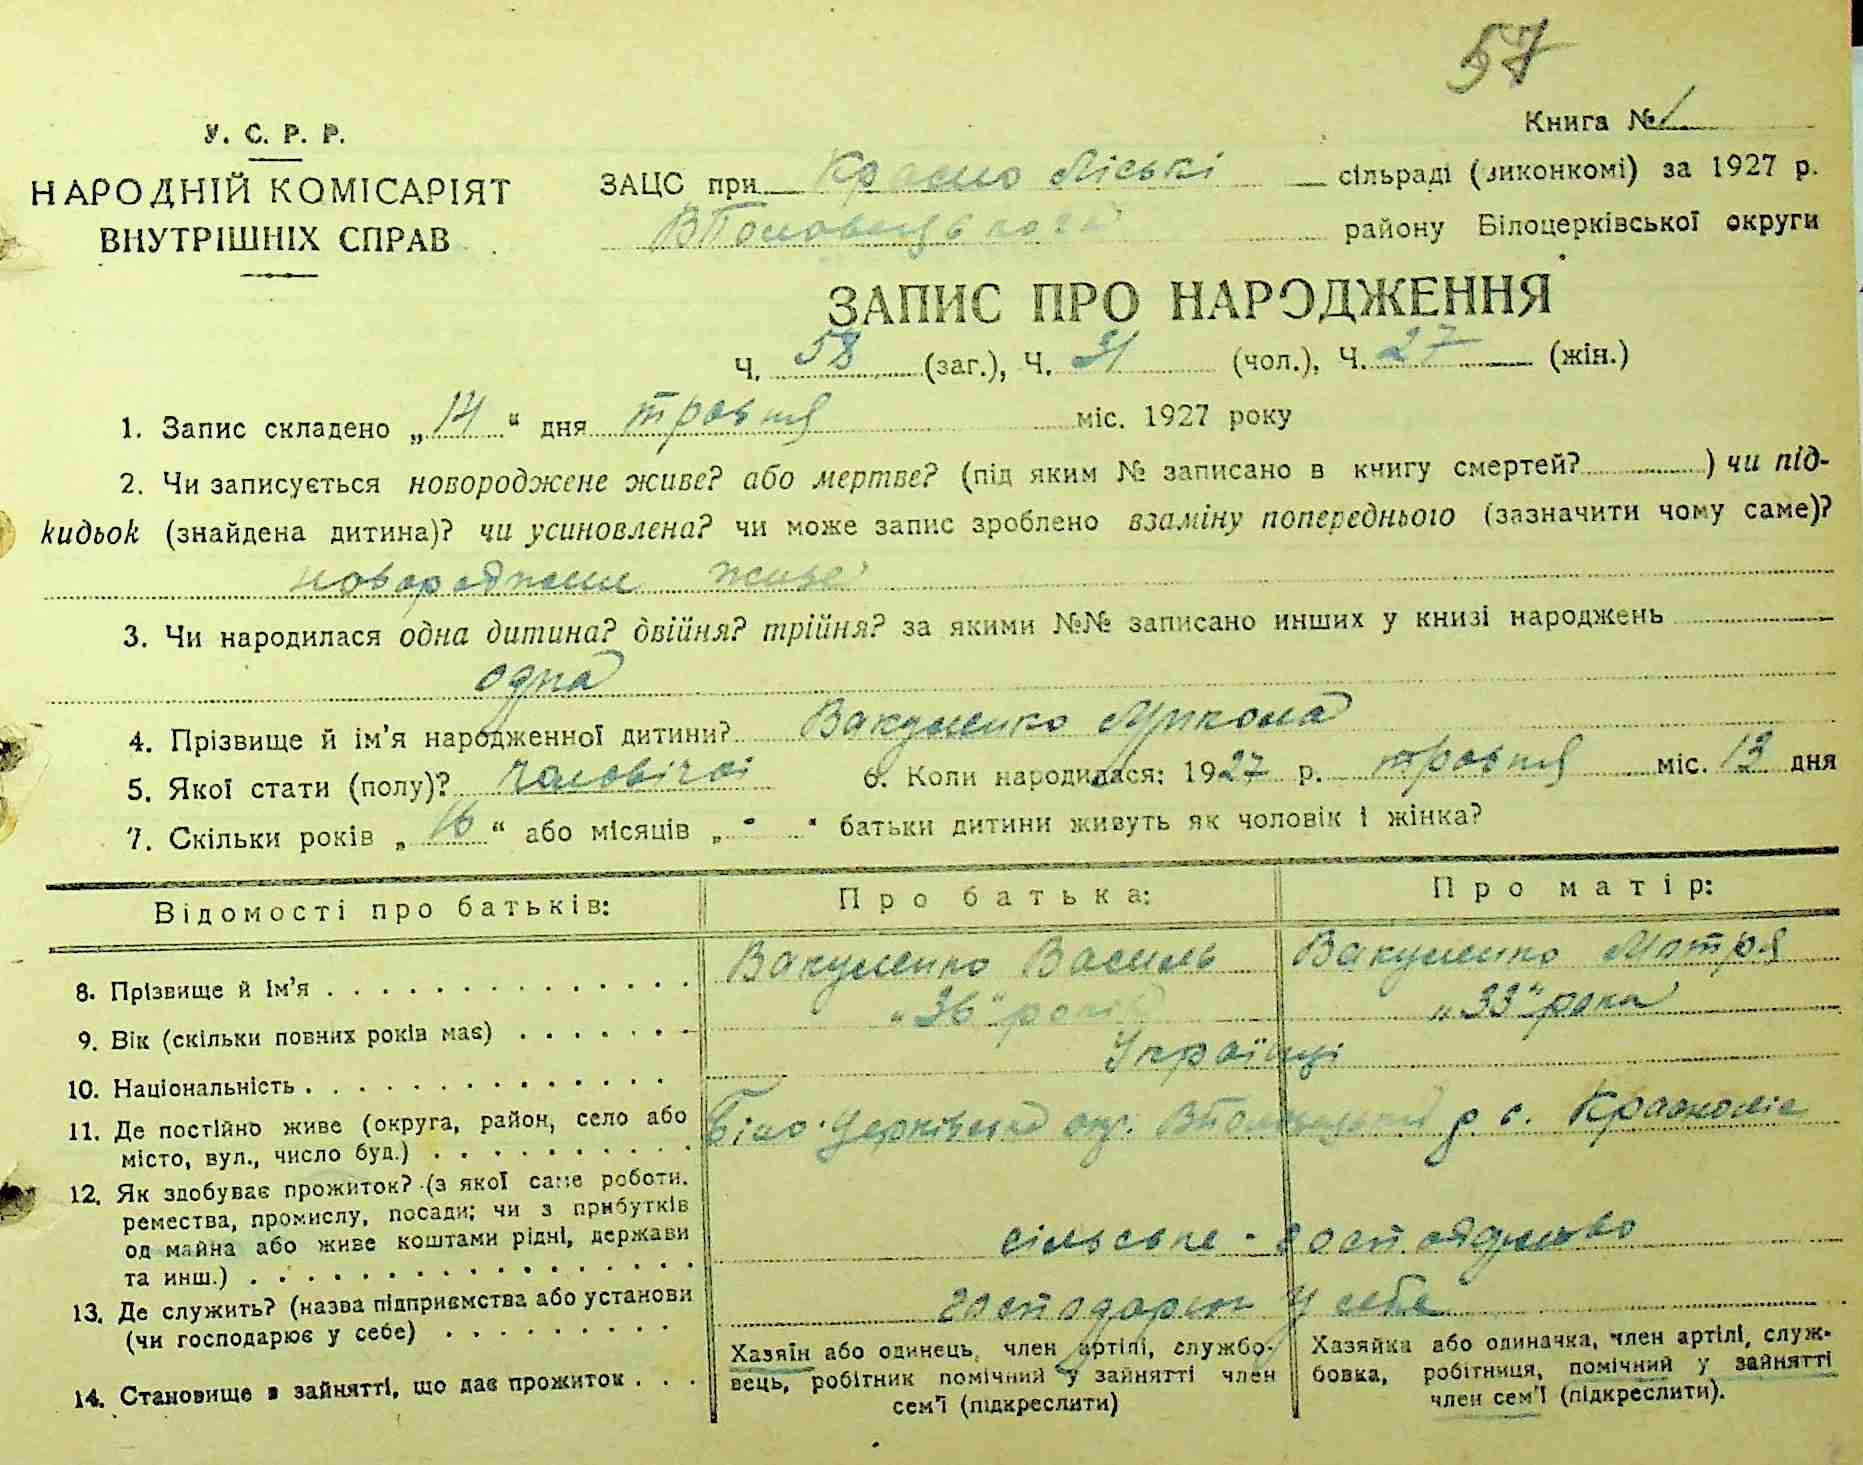 57
Книга № 1
У. С. Р. Р.
НАРОДНІЙ КОМІСАРІЯТ
ВНУТРІШНІХ СПРАВ
ЗАЦС при Красно Ліські сільраді (виконкомі) за 1927 р.
району Білоцерківської округи
ЗАПИС ПРО НАРОДЖЕННЯ
Ч. 58 (заг.), Ч. 31 (чол.), Ч. 27 (жін.)
1. Запис складено „ 14 “ дня травня міс. 1927 року
2. Чи записується новороджене живе? або мертве? (під яким № записано в книгу смертей? ) чи під-
кидьок (знайдена дитина)? чи усиновлена? чи може запис зроблено взаміну попереднього (зазначити чому саме)?
живе
3. Чи народилася одна дитина? двійня? трійня? за якими №№ записано инших у книзі народжень
одна
4. Прізвище й ім'я народженної дитини? Вакуленко Микола
5. Якої стати (полу)? чоловічої 6. Коли народилася: 1927 р. травня міс. 13 дня
7. Скільки років „ 16 “ або місяців „ - “ батьки дитини живуть як чоловік і жінка?
Відомості про батьків: Про батька: Про матір:
8. Прізвище й ім'я Вакуленко Василь Вакуленко Мотря
9. Вік (скільки повних років має) „36“ років „33“ роки
10. Національність Українці
11. Де постійно живе (округа, район, село або
місто, вул., число буд.) Біло-Церківська окр. р. с. Краснолісе
12. Як здобуває прожиток? (з якої саме роботи,
ремества, промислу, посади; чи з прибутків
од майна або живе коштами рідні, держави
та инш.) сільське-господарство
13. Де служить? (назва підприємства або установи
(чи господарює у себе) у себе
14. Становище в зайнятті, що дає прожиток
Хазяїн або одинець, член артілі, службо-
вець, робітник помічний у зайнятті член
сем'ї (підкреслити)
Хазяйка або одиначка, член артілі, служ-
бовка, робітниця, помічний у зайнятті
член сем'ї (підкреслити).